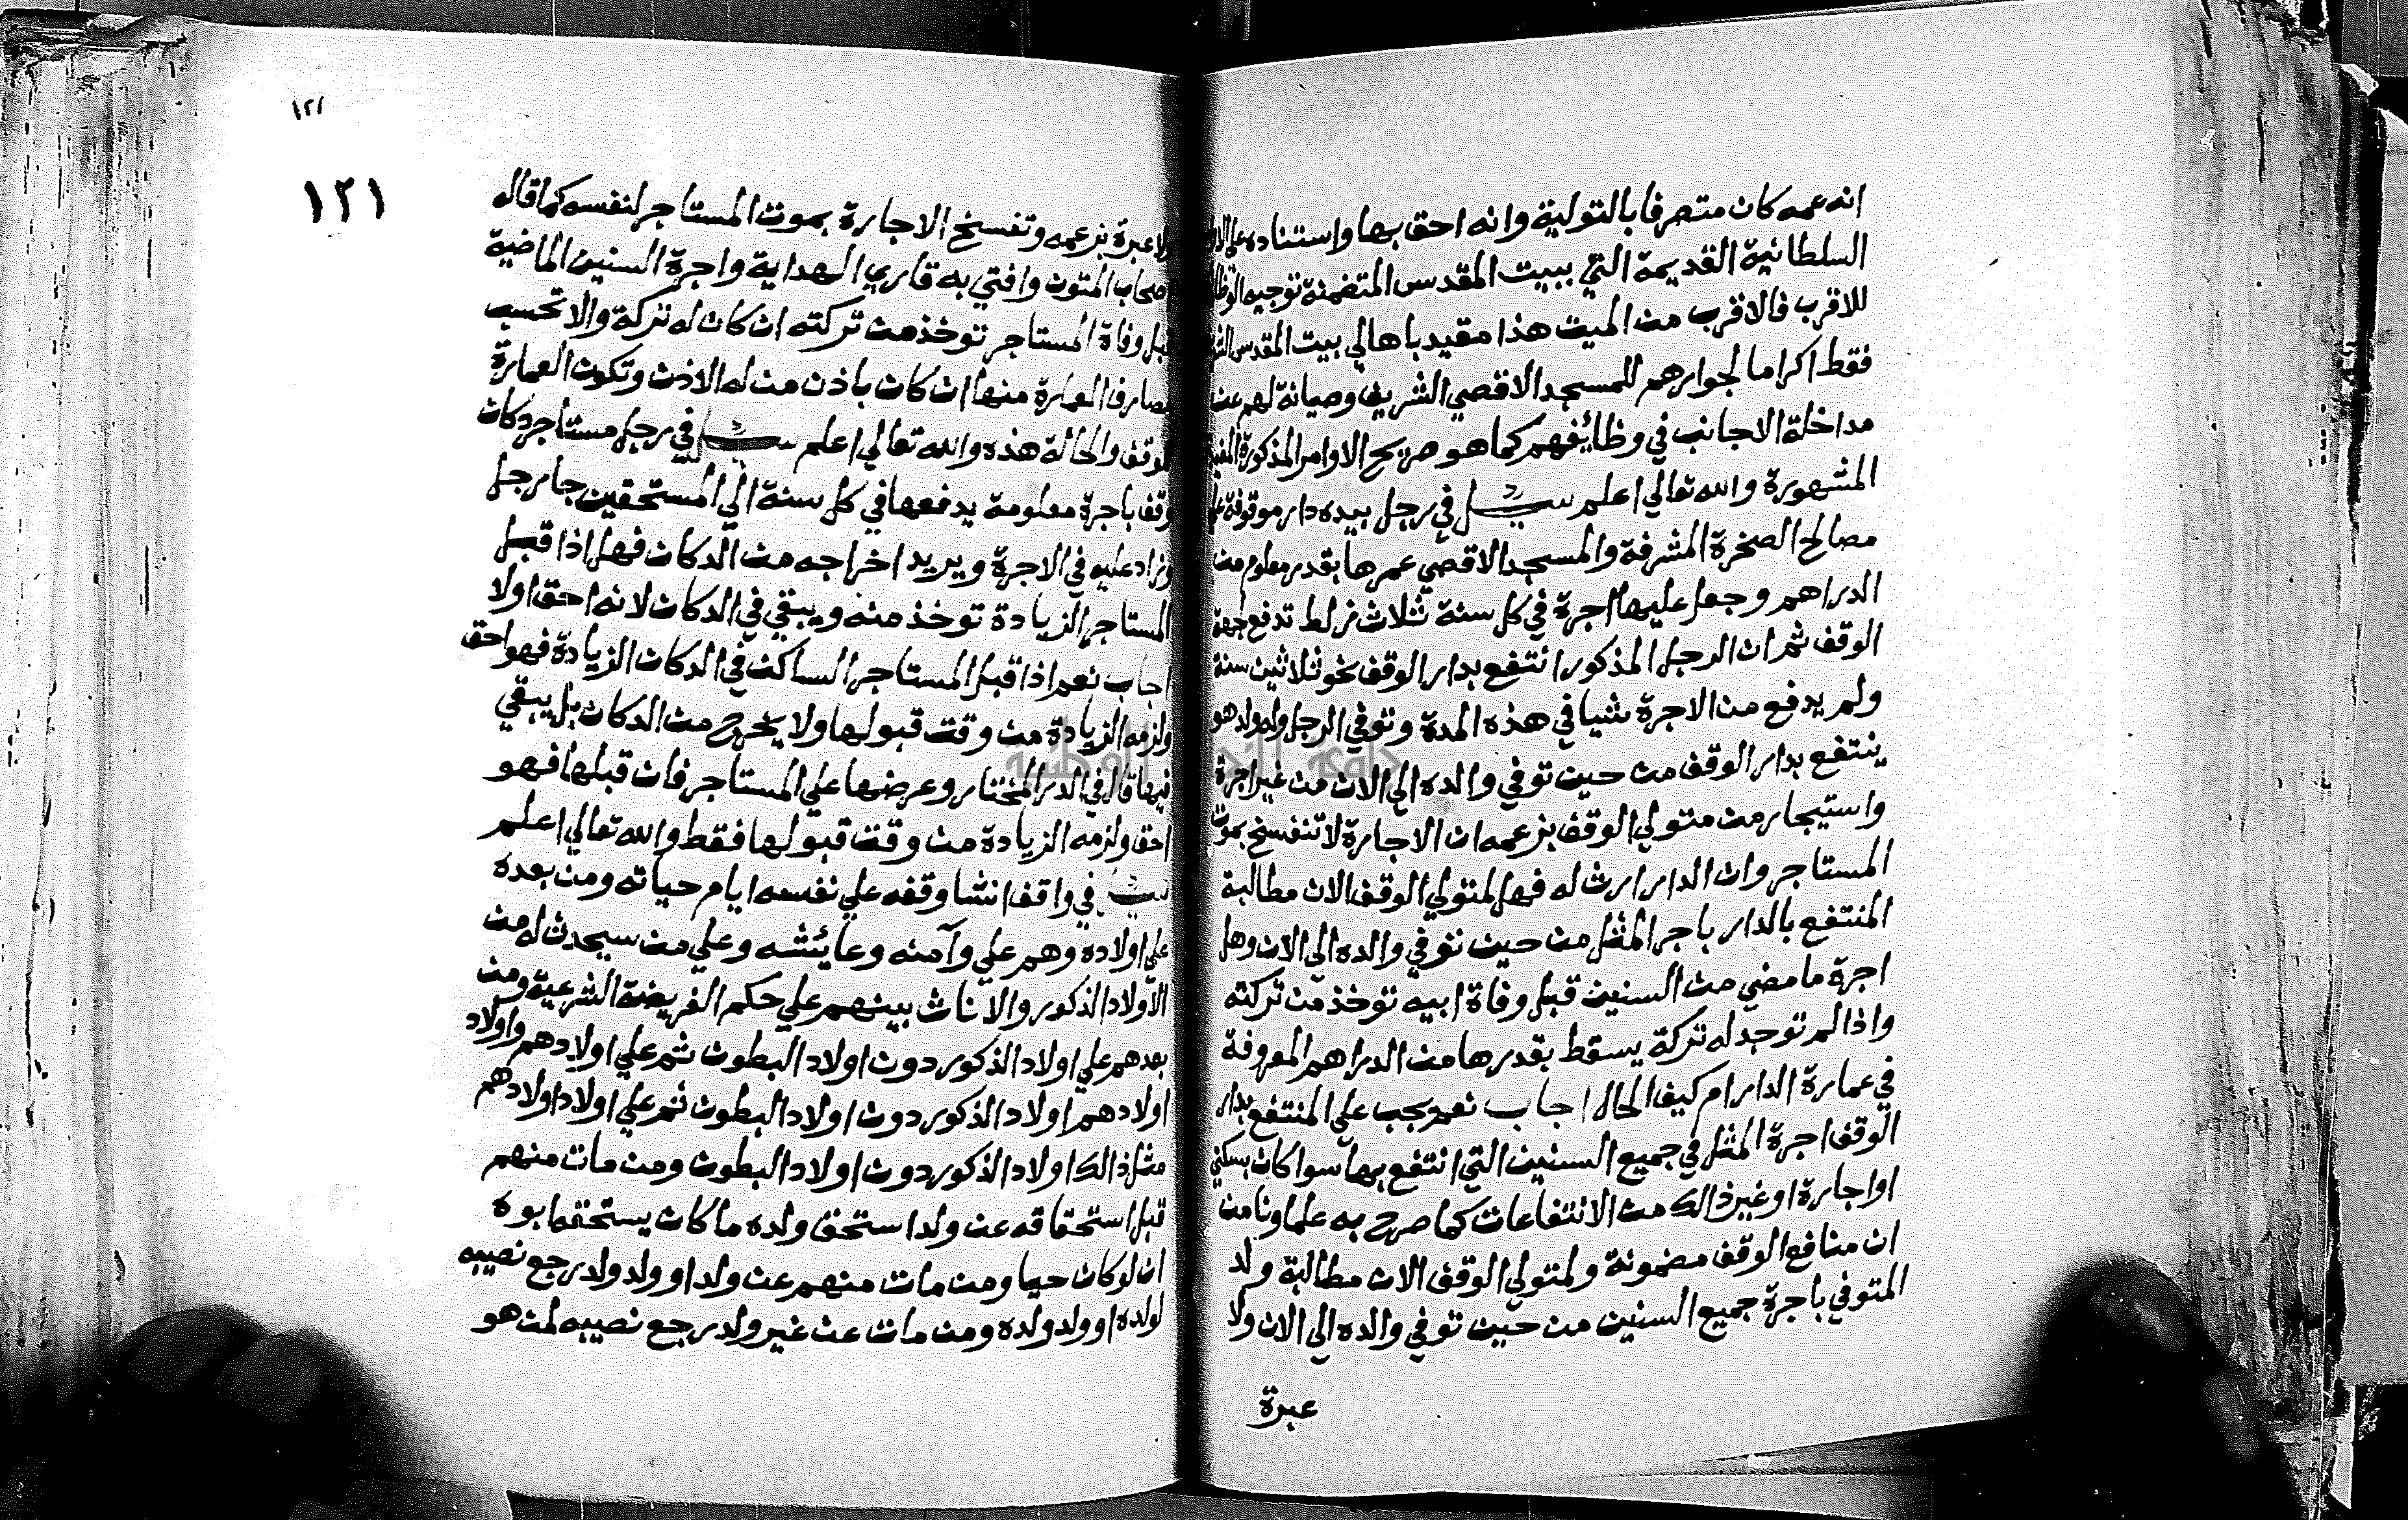 انه عمه كان متصرفا بالتولية وانه احق بها واستناده علي
السلطانية القديمة التي ببيت المقدس المتضمنة توجيه
للاقرب فالاقرب من الميت هذا مقيد باهالي بيت المقدس
فقط اكراما لجوارهم للمسجد الاقصي الشريف وصيانة لهم عن
مداخلة الاجانب في وظائفهم كما هو صريح الاوامر المذكورة
المشهورة والله تعالي اعلم سئل في رجل بيده دار موقوفة
مصالح الصخرة المشرفة والمسجد الاقصي عمرها بقدر معلوم من
الدراهم وجعل عليها اجرة في كل سنة ثلاث زلط تدفع لجهة
الوقف ثم ان الرجل المذكور انتفع بدار الوقف نحو ثلاثين سنة
ولم يدفع من الاجرة شيا في هذه المدة وتوفي الرجل وله ولد هو
ينتفع بدار الوقف من حين توفي والده الي الان من غير اجرة
واستيجار من متولي الوقف بزعمه ان الاجارة لا تنفسخ بموت
المستاجر وان الدار ارث له فهل لمتولي الوقف الان مطالبة
المنتفع بالدار باجر المثل من حين توفي والده الي الان وهل
اجرة ما مضي من السنين قبل وفاة ابيه توخذ من تركته
واذا لم توجد له تركة يسقط بقدرها من الدراهم المعروفة
في عمارة الدار ام كيف الحال اجاب نعم يجب علي المنتفع بدار
الوقف اجرة المثل في جميع السنين التي انتفع بها سوا كان بسكني
او اجارة او غير ذالك من الانتفاعات كما صرح به علماونا من
ان منافع الوقف مضمونة ولمتولي الوقف الان مطالبة ولد
المتوفي باجرة جميع السنين من حين توفي والده الي الان ولا
عبرة
١٢١
١٢١
ولا عبرة بزعمه وتفسخ الاجارة بموت المستاجر لنفسه كما قاله
اصحاب المتون وافتي به قاري الهداية واجرة السنين الماضية
قبل وفاة المستاجر توخذ من تركته ان كان له تركة والا تحسب
مصارف العمارة منها ان كان باذن من له الاذن وتكون العمارة
للوقف والحالة هذه والله تعالي اعلم سئل في رجل مستاجر دكان
وقف باجرة معلومة يدفعها في كل سنة الي المستحقين جا رجل
وزاد عليه في الاجرة ويريد اخراجه من الدكان فهل اذا قبل
المستاجر الزيادة توخذ منه ويبقي في الدكان لانه احق اولا
اجاب نعم اذا قبل المستاجر الساكن في الدكان الزيادة فهو احق
ولزمه الزيادة من وقت قبولها ولا يخرج من الدكان بل يبقي
فيها قال في الدر المختار وعرضها علي المستاجر فان قبلها فهو
احق ولزمه الزيادة من وقت قبولها فقط والله تعالي اعلم
سئل في واقف انشا وقفه علي نفسه ايام حياته ومن بعده
علي اولاده وهم علي وآمنه وعائشه وعلي من سيحدث له من
الاولاد الذكور والاناث بينهم علي حكم الفريضة الشرعية ومن
بعدهم علي اولاد الذكور دون اولاد البطون ثم علي اولادهم واولاد
اولادهم اولاد الذكور دون اولاد البطون ثم علي اولاد اولادهم
مثل ذالك اولاد الذكور دون اولاد البطون ومن مات منهم
قبل استحقاقه عن ولد استحق ولده ما كان يستحقه ابوه
ان لو كان حيا ومن مات منهم عن ولد او ولد ولد رجع نصيبه
لولده او ولد ولده ومن مات عن غير ولد رجع نصيبه لمن هو